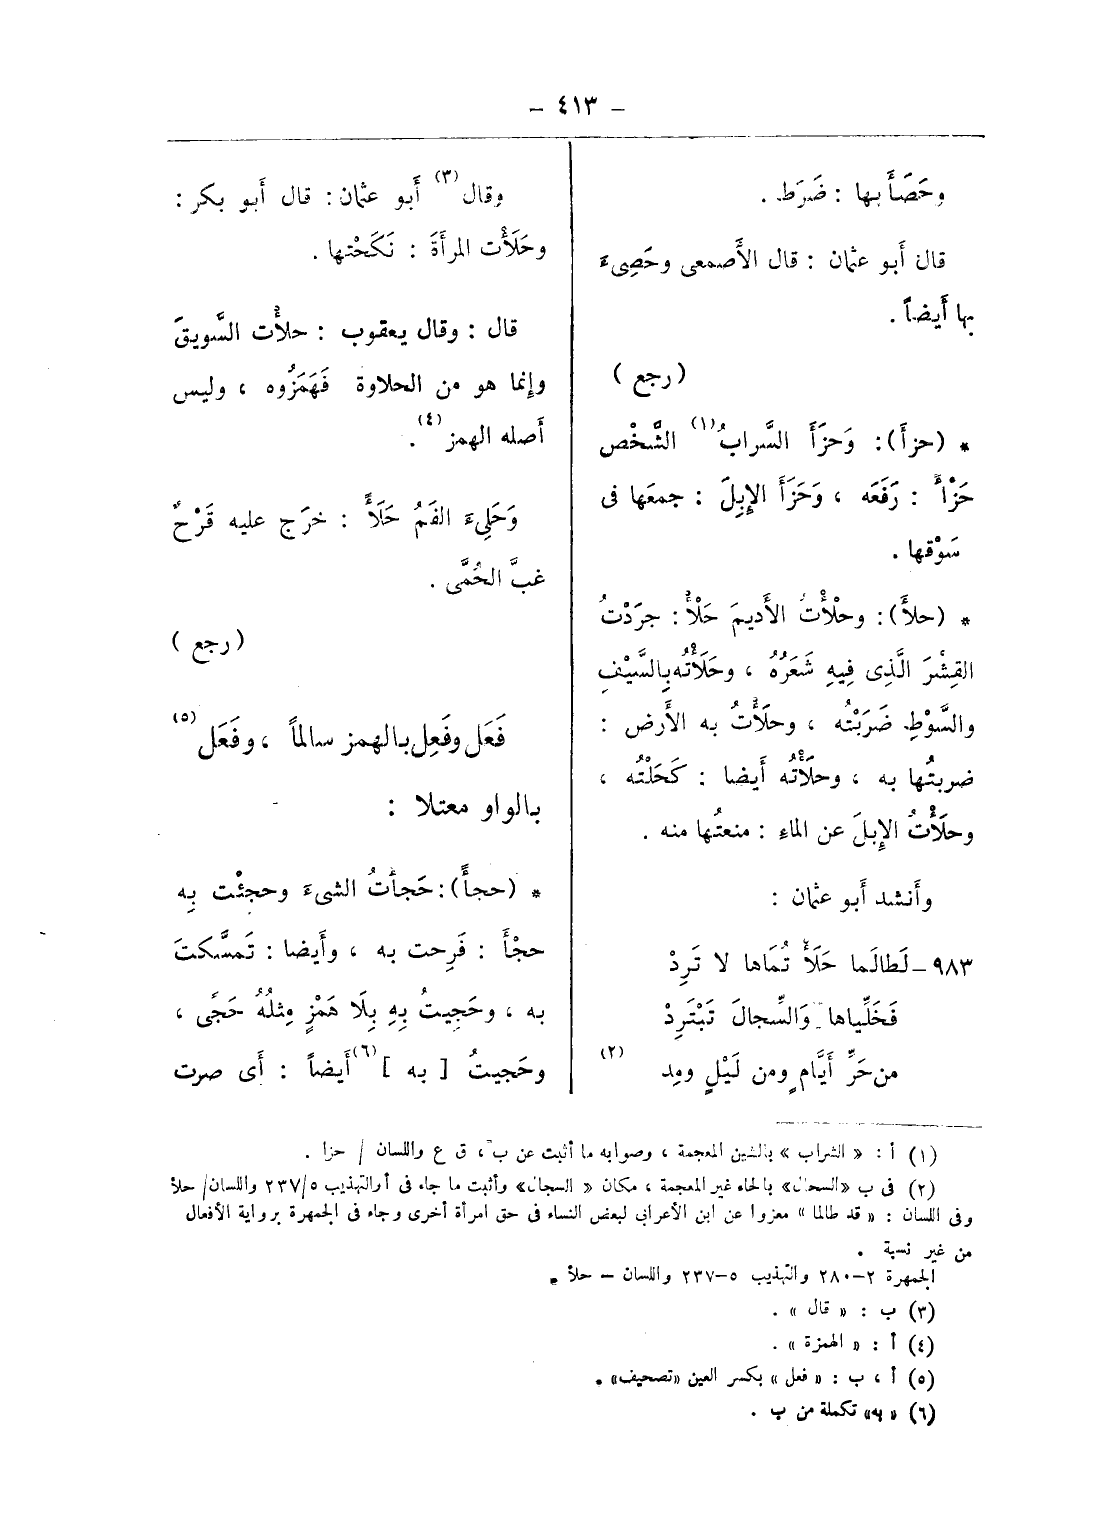 – ٤١٣ –
وحَصَأَ بها : ضَرَط .
قال أَبو عثمان : قال الأَصمعى وحَصِىءَ
بها أَيضاً .
( رجع )
* (حزأ): وَحزَأَ السَّرابُ(١) الشَّخْص
حَزْأً : رَفَعَه ، وَحَزَأَ الإِبِلَ : جمعَها فى
سَوْقها .
* (حلأ): وحلأْتُ الأَديمَ حَلْأً: جرَدْتُ
القِشْرَ الَّذِى فِيهِ شَعَرُهُ ، وحَلَأْتُه بِالسَّيْفِ
والسَّوْطِ ضَرَبْتُه ، وحلَأْتُ به الأَرض :
ضربتُها به ، وحلَأْتُه أَيضا : كَحَلْتُه ،
وحلَأْتُ الإِبلَ عن الماءِ : منعتُها منه .
وأَنشد أَبو عثمان :
٩٨٣–لَطالَما حَلَأْتُمَاها لا تَرِدْ
فَخَلِّياها وَالسِّجالَ تَبْتَرِدْ
من حَرِّ أَيَّامٍ ومن لَيْلٍ ومِد (٢)
وقال(٣) أَبو عثمان: قال أَبو بكر :
وحَلَأْت المرأَةَ : نَكَحْتها .
قال : وقال يعقوب : حلأْت السَّويقَ
وإنما هو من الحلاوة فَهَمَزُوه ، وليس
أَصله الهمز(٤) .
وَحَلِىءَ الفَمُ حَلَأً : خرَج عليه قَرْحٌ
غبَّ الحُمَّى .
( رجع )
فَعَل وفَعِل بالهمز سالماً ، وفَعَل (٥)
بالواو معتلا :
* (حجأ): حَجأْتُ الشىءَ وحجئْت بِه
حجْأً : فَرِحت به ، وأَيضا : تَمسَّكتَ
به ، وحَجِيتُ بِهِ بِلَا هَمْزٍ مِثلُهُ حَجًى ،
وحَجيتُ [ به ](٦) أَيضاً : أَى صرت
(١) أ : « الشراب » بالشين المعجمة ، وصوابه ما أثبت عن ب ، ق ع واللسان / حزا .
(٢) فى ب «السحال» بالحاء غير المعجمة ، مكان « السجال» وأثبت ما جاء فى أ والتهذيب ٢٣٧/٥ واللسان/ حلأ
وفى اللسان : « قد طالما » معزوا عن ابن الأعرابى لبعض النساء فى حق امرأة أخرى وجاء فى الجمهرة برواية الأفعال
من غير نسبة .
الجمهرة ٢–٢٨٠ والتهذيب ٥–٢٣٧ واللسان – حلأ .
(٣) ب : « قال » .
(٤) أ : « الهمزة » .
(٥) أ ، ب : « فعل » بكسر العين «تصحيف» .
(٦) « به» تكملة من ب .